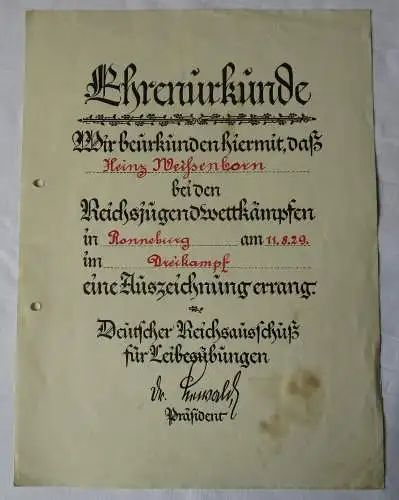 Ehrenurkunde
Wir beurkunden hiermit, daß
Heinz Weißenborn
bei den
Reichsjugendwettkämpfen
in Ronneburg am 11.8.29.
im Dreikampf
eine Auszeichnung errang.
Deutscher Reichsausschuß
für Leibesübungen
Dr. Lewald
Präsident